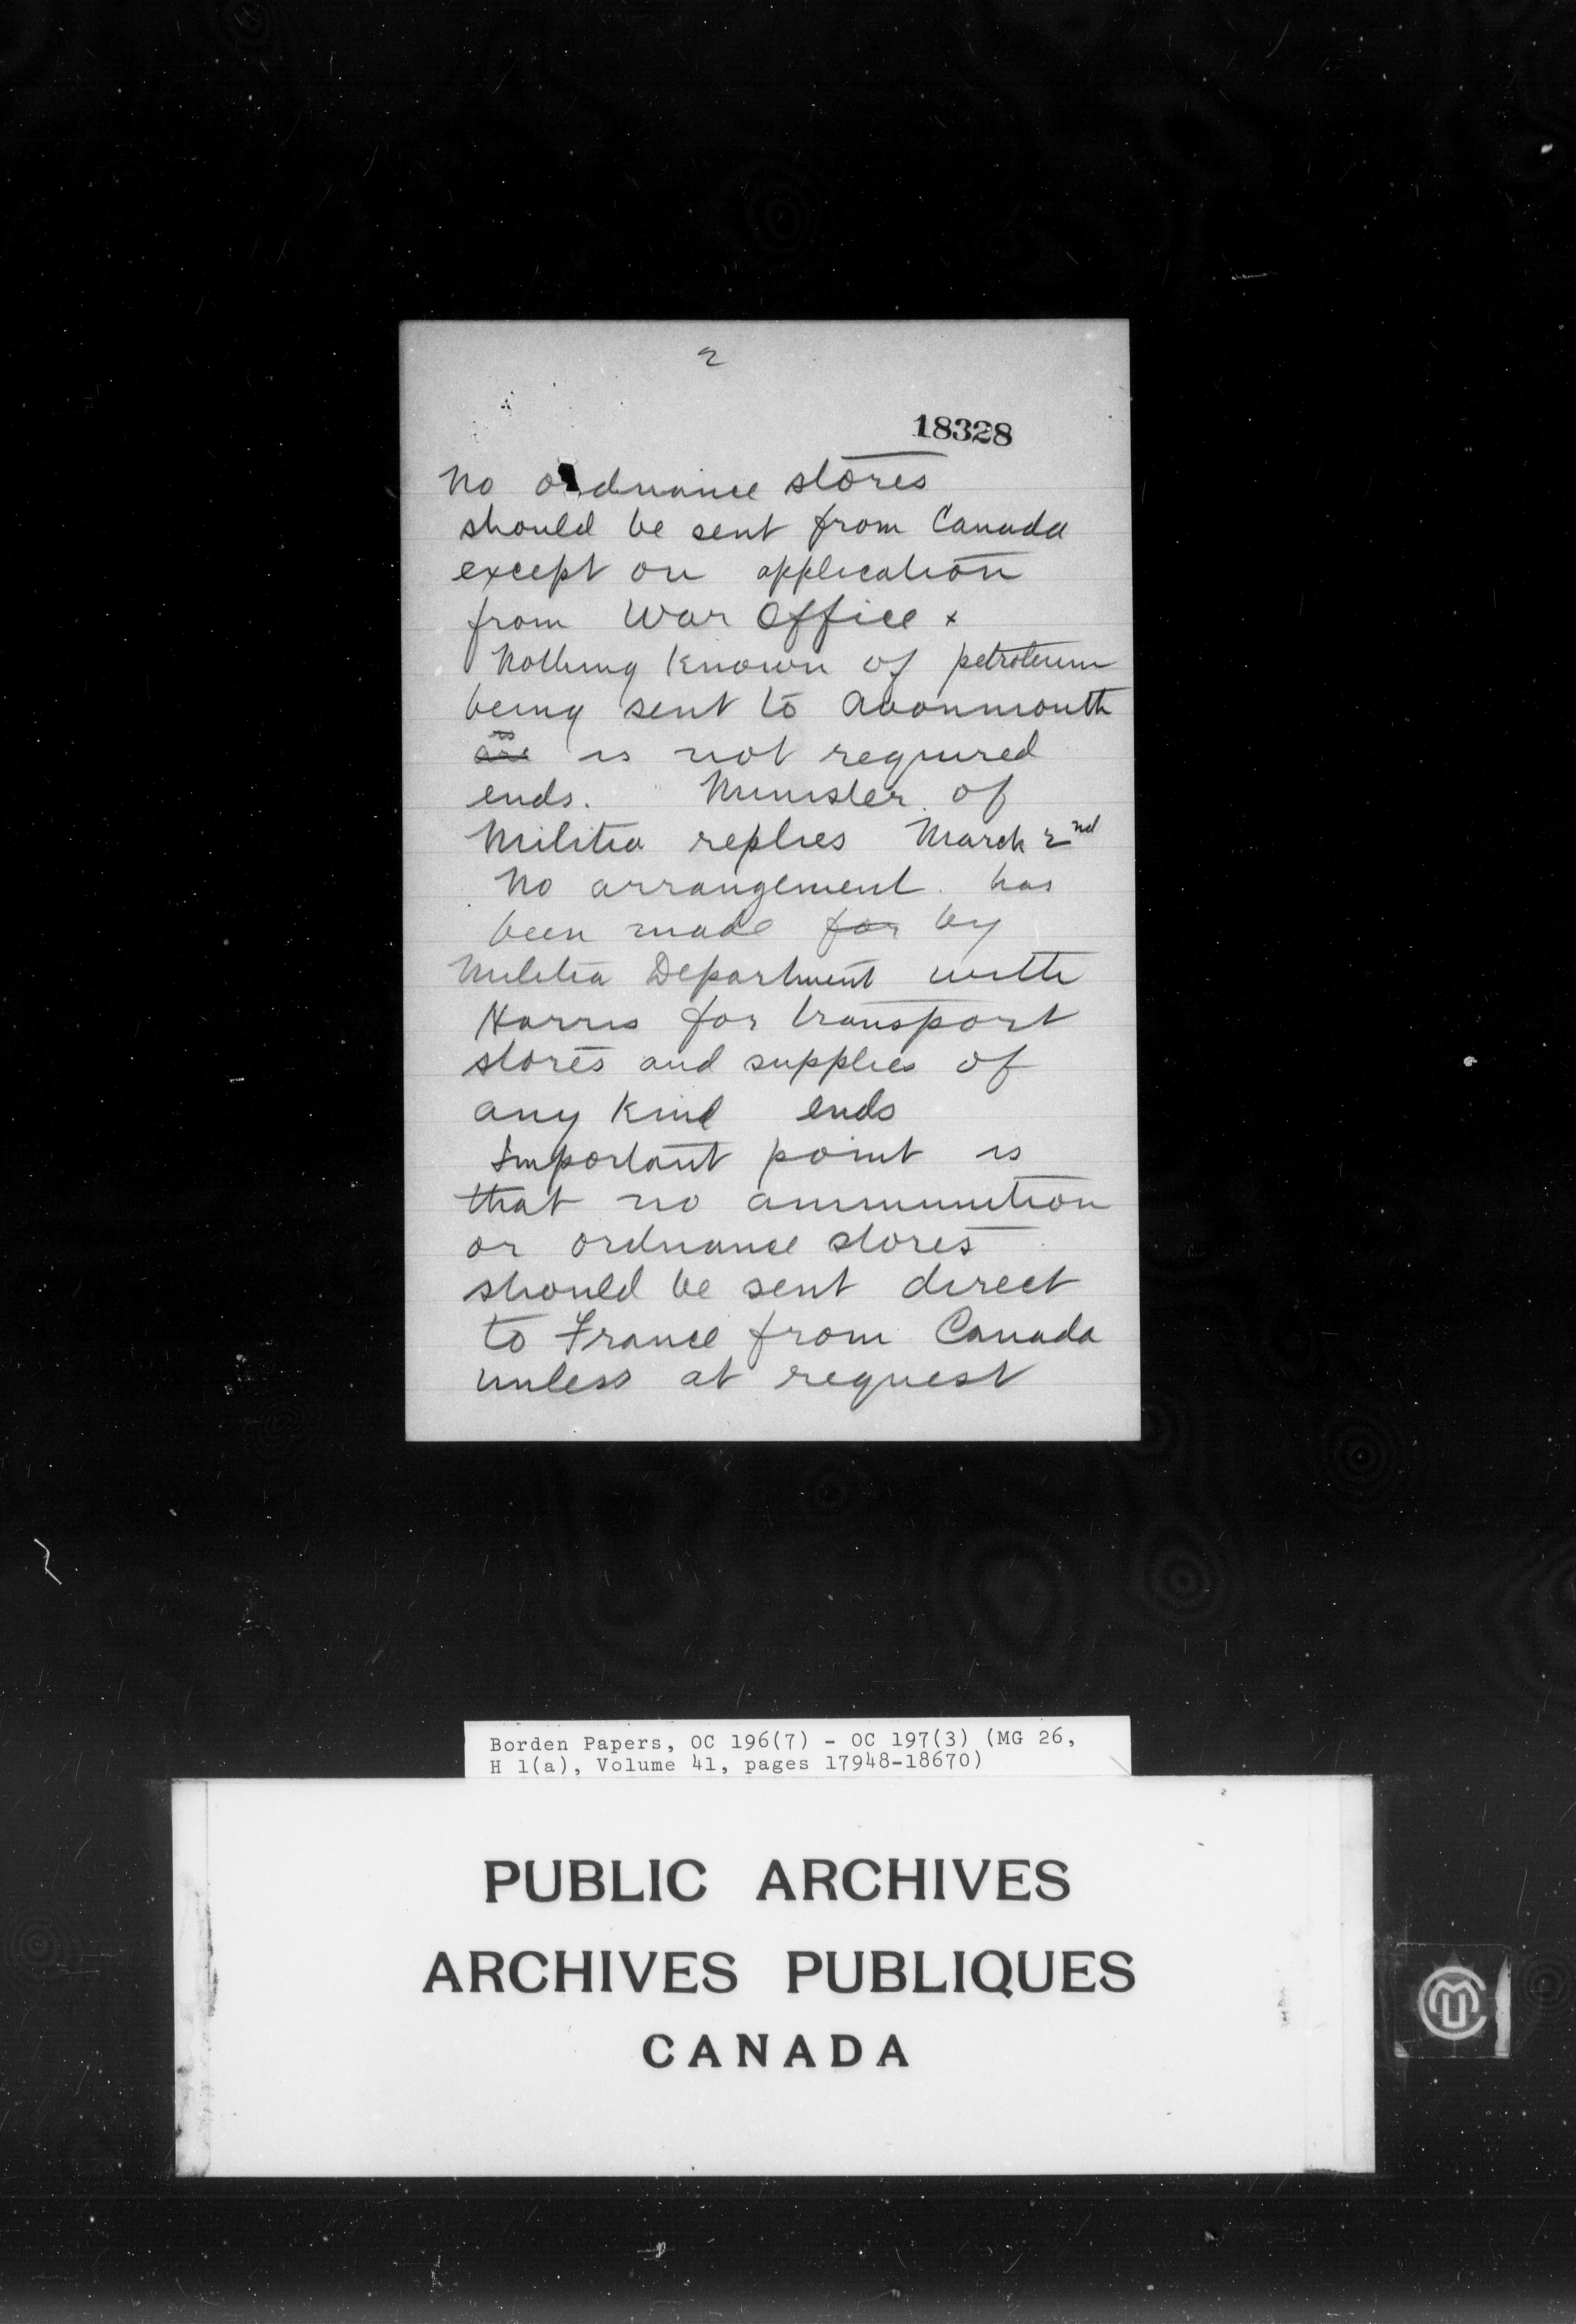 2
18328
No ordnance stores
should be sent from Canada
except on application
from War Office x
Nothing known of petroleum
being sent to Avonmouth
as
are is not required
ends. Minister of
Militia replies March 2nd
No arrangement has
been made for by
Militia Department with
Harris for transport
stores and supplies of
any kind ends
Important point is
that no ammunition
or ordnance stores
should be sent direct
to France from Canada
unless at request
Borden Papers, OC 196(7) - OC 197(3) (MG 26,
H 1(a), Volume 41, pages 17948-18670)
PUBLIC ARCHIVES
ARCHIVES PUBLIQUES
CANADA